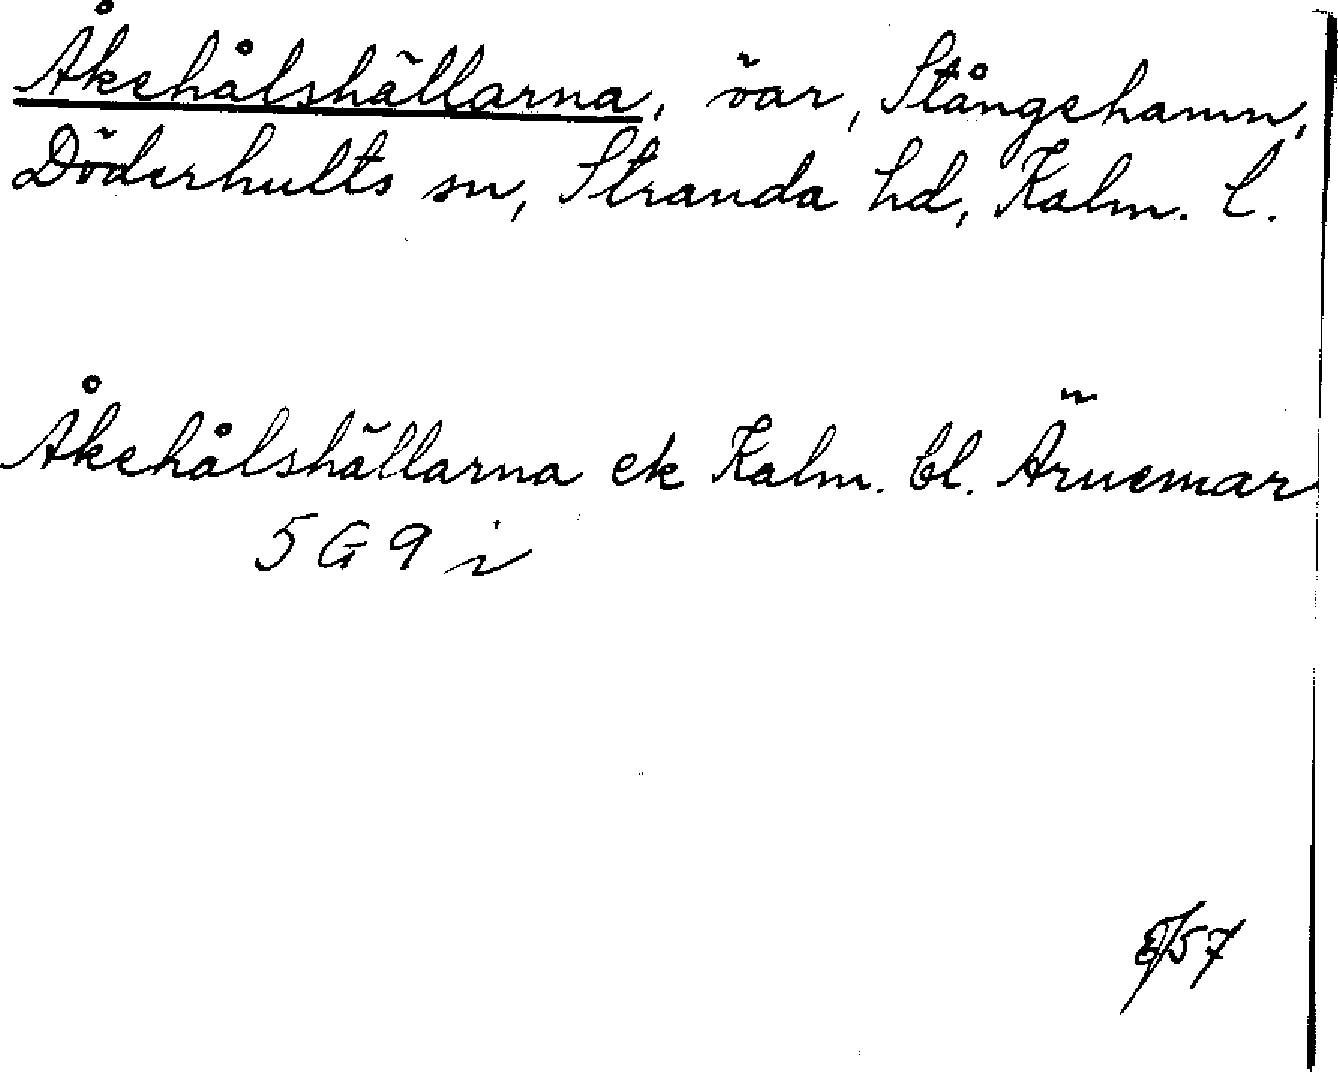 Åkehålshällarna, öar, Stångehamn,
Döderhults sn, Stranda hd, Kalm. l.
Åkehålshällarna ek Kalm. bl. Ärnemar
5 G 9 i